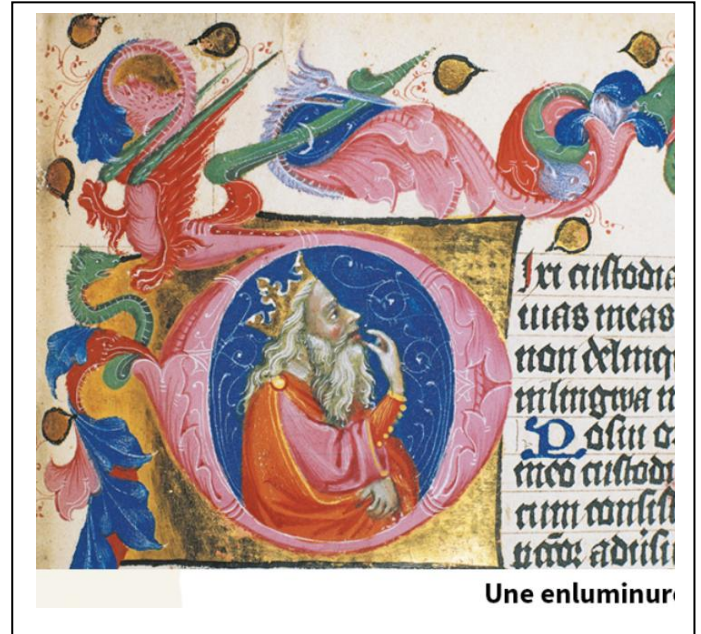 D
Ixi custodia
uias meas
non delinq
in lingwa m
Posui o
meo custodi
cum consist
Une enluminure